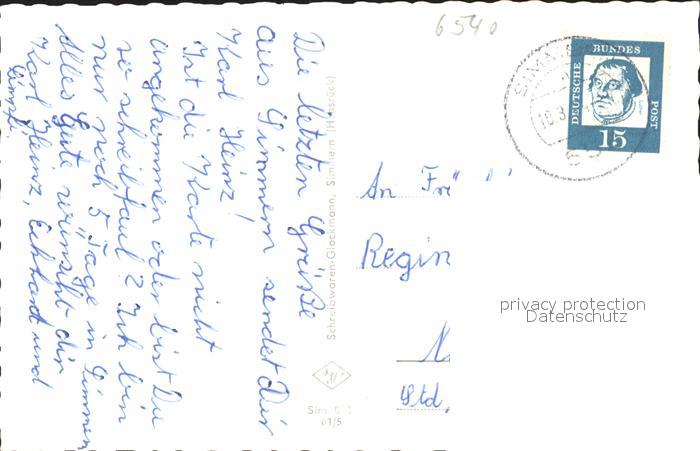 6540
Die letzten Grüße
aus Simmern sendet Dir
Karl Heinz!
Ist die Karte nicht
angekommen oder bist Du
so schreibfaul? Ich bin
nur noch 5 Tage in Simmern
Alles Gute wünscht dir
Karl Heinz, Eckhard und
Schreibwaren-Glockmann, Simmern (Hunsrück)
Sim
61/5
SIMM
18.3
DEUTSCHE BUNDES POST
15
An Fr
Regin
N
Std.
privacy protection
Datenschutz